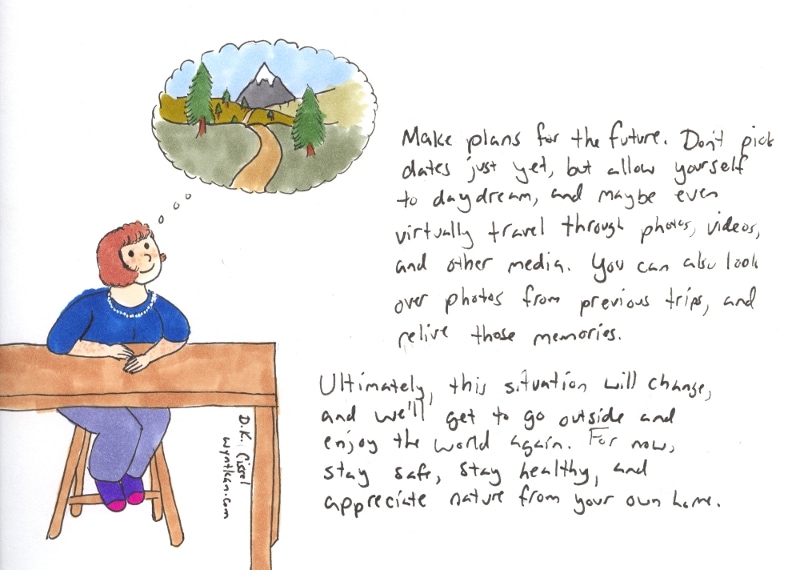 Make plans for the future. Don't pick
dates just yet, but allow yourself
to daydream, and maybe even
virtually travel through photos, videos,
and other media. You can also look
over photos from previous trips, and
relive those memories.
Ultimately, this situation will change,
and we'll get to go outside and
enjoy the world again. For now,
stay safe, stay healthy, and
appreciate nature from your own home.
D.K. Cissel
wyntkan.com